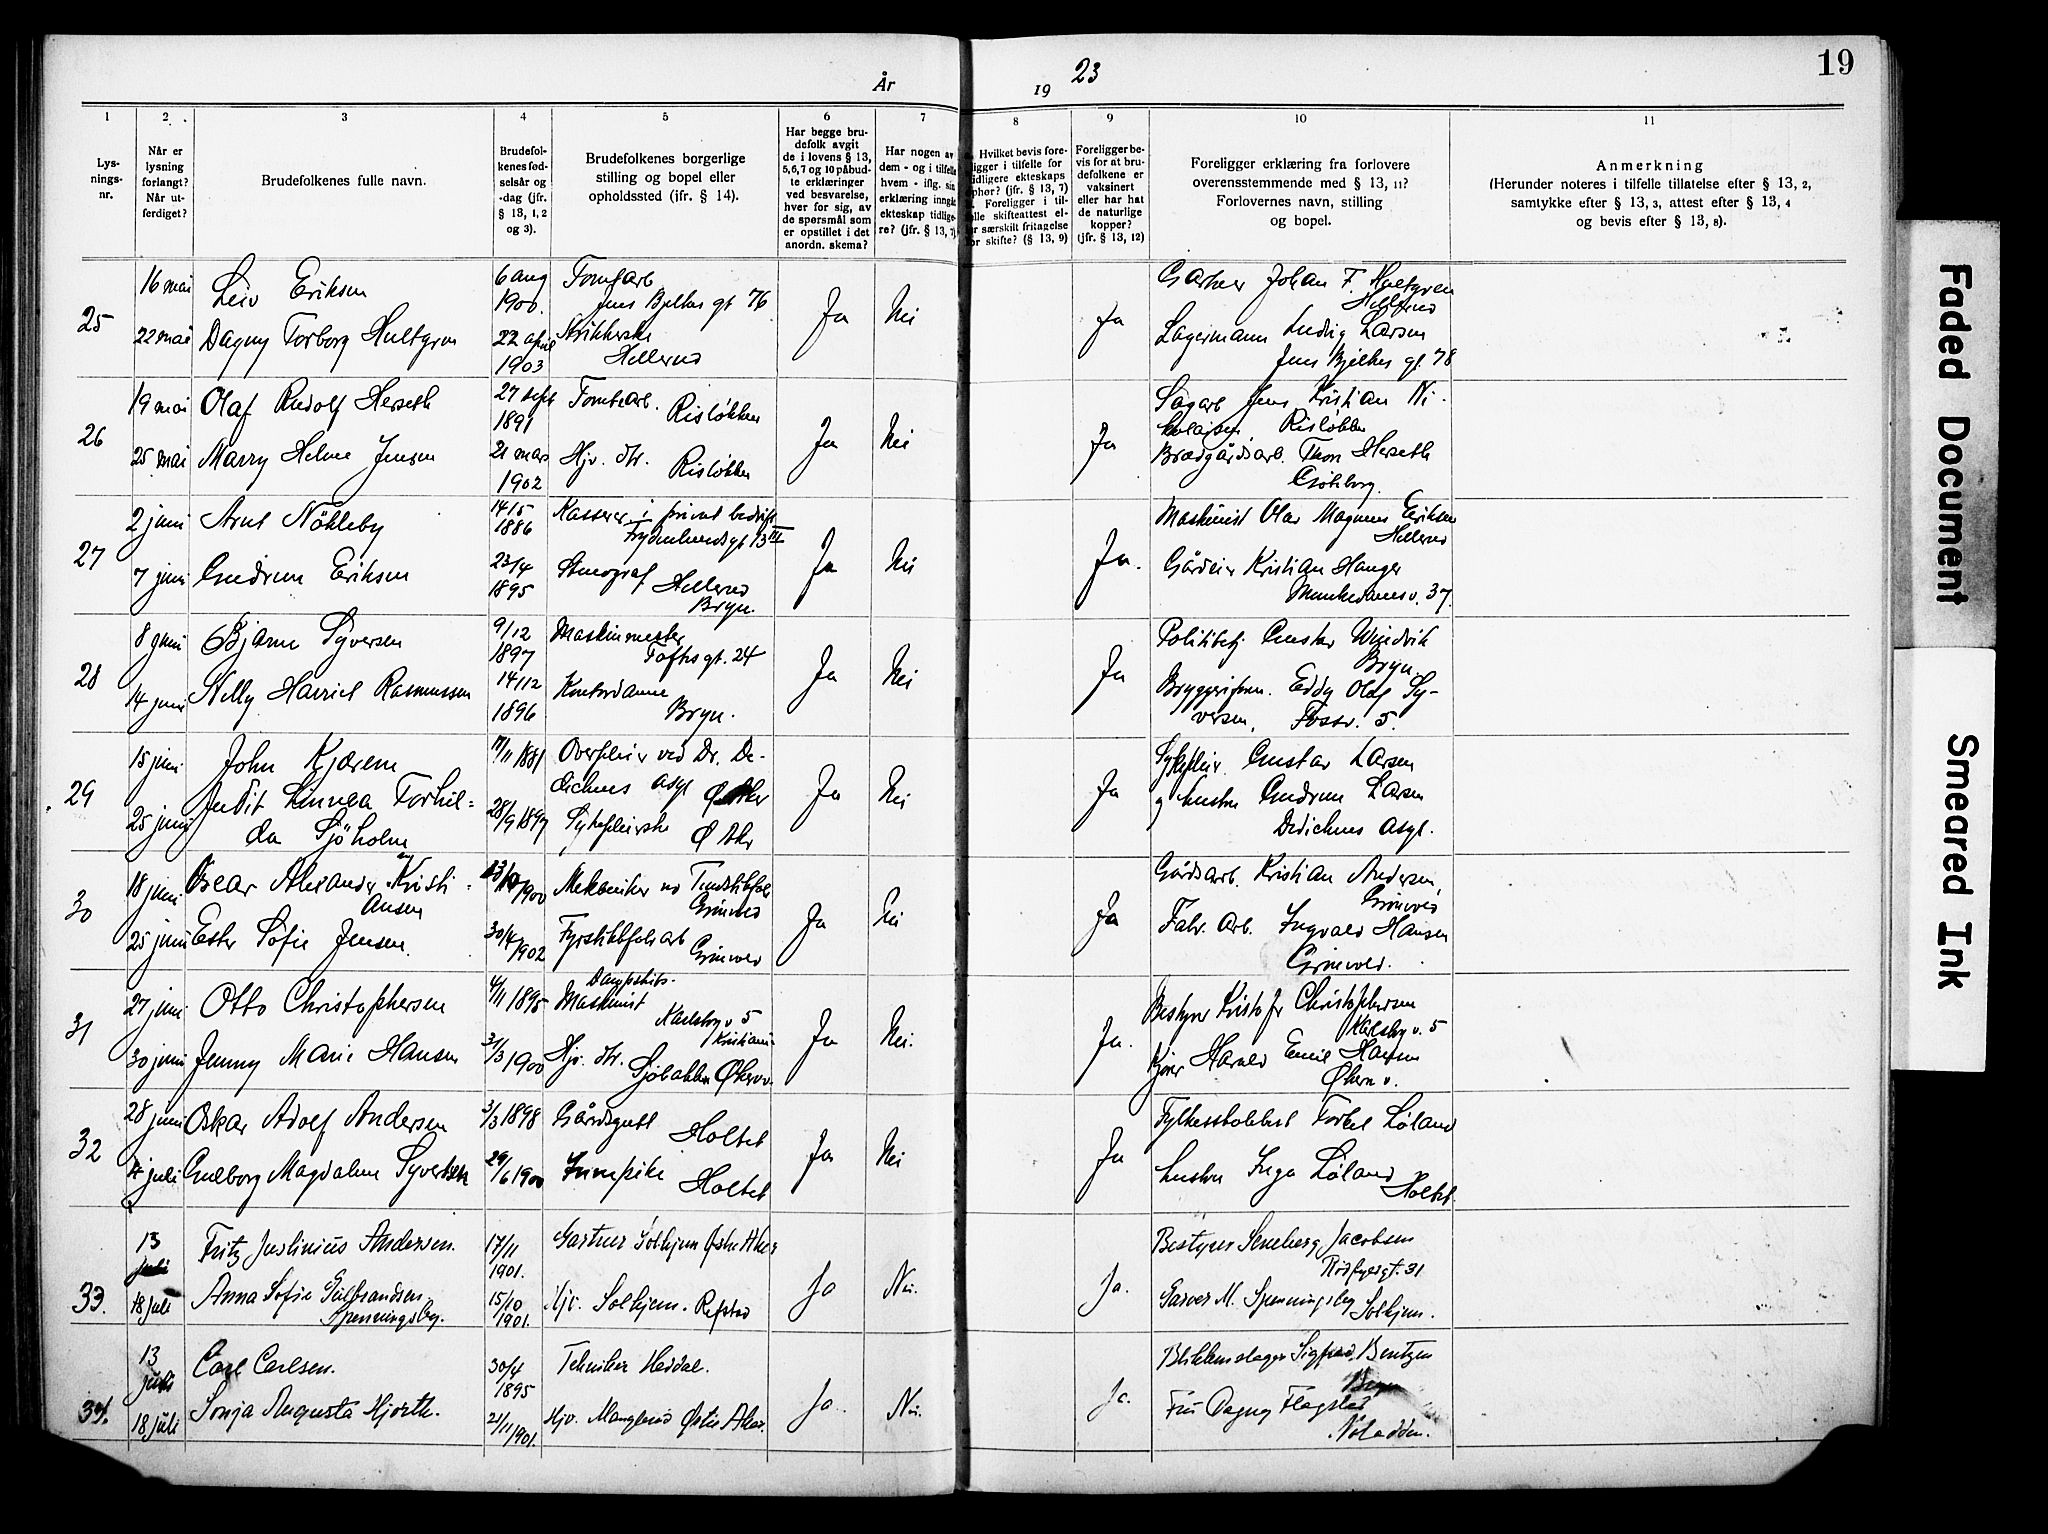 År 19 23
19
1 2 3 4 5 6 7 8 9 10 11
Lys-
nings-
nr.
Når er
lysning
forlangt?
Når ut-
ferdiget?
Brudefolkenes fulle navn.
Brudefol-
kenes fød-
selsår og
-dag (jfr.
§ 13, 1, 2
og 3).
Brudefolkenes borgerlige
stilling og bopel eller
opholdssted (jfr. § 14).
Har begge bru-
defolk avgit
de i lovens § 13,
5, 6, 7 og 10 påbud-
te erklæringer
ved besvarelse,
hver for sig, av
de spørsmål som
er opstillet i det
anordn. skema?
Har nogen av
dem - og i tilfelle
hvem - iflg. sin
erklæring inngåt
ekteskap tidlige-
re? (jfr. § 13, 7)
Hvilket bevis fore-
ligger i tilfelle for
tidligere ekteskaps
ophør? (jfr. § 13, 7)
Foreligger i til-
felle skifteattest el-
ler særskilt fritagelse
for skifte? (§ 13, 9)
Foreligger be-
vis for at bru-
defolkene er
vaksinert
eller har hat
de naturlige
kopper?
(jfr. § 13, 12)
Foreligger erklæring fra forlovere
overensstemmende med § 13, 11?
Forlovernes navn, stilling
og bopel.
Anmerkning
(Herunder noteres i tilfelle tillatelse efter § 13, 2,
samtykke efter § 13, 3, attest efter § 13, 4
og bevis efter § 13, 8).
25
16 mai
22 mai
Leiv Eriksen
Dagny Torborg Hultgren
6 aug
1900.
22 april
1903
Tomtarb
Jens Bjelkes gt 76
Strikkerske
Hellerud
Ja
Nei
Ja
Garver Johan F. Hultgren
Hellerud
Lagermann Ludvig Larsen
Jens Bjelkes gt. 78
26
19 mai
25 mai
Olaf Rudolf Herseth
Marry Helene Jensen
27 sept
1891
21 mars
1902
Tomtearb.
Risløkken
Hjv. dtr.
Risløkken
Ja
Nei
Ja
Sagarb Jens Kristian Ni-
kolaisen, Risløkken
Brædgårdsarb. Thor Herseth
Gøteborg.
27
2 juni
7 juni
Arne Nökleby
Gudrun Eriksen
14/5
1886
23/4
1895
Kasserer i privat bedrift
Frydenlundsgt 13 III
Stenograf Hellerud
Bryn.
Ja
Nei
Ja.
Maskinist Olav Magnus Eriksen
Hellerud
Gårdeier Kristian Hauger
Munkedamsv. 37.
28
8 juni
14 juni
Bjarne Syversen
Nelly Harriet Rasmussen
9/12
1897
14/12
1896
Maskinmester
Toftes gt. 24
Kontordame
Bryn.
Ja
Nei
Ja
Politibetj Gustav Windvik
Bryn.
Bryggeriform. Eddy Olaf Sy-
versen, Fossv. 5.
29
15 juni
25 juni
John Kjærem
Judit Linnea Torhil-
da Sjöholm
17/11 1881
28/9 1897
Overpleier ved Dr. De-
dichens asyl Ø Aker
Sykepleierske
Ø Akr
Ja
Nei
Ja
Sykepleier Gustav Larsen
og hustru Gudrun Larsen
Dedichens Asyl.
30
18 juni
25 juni
Oscar Alexander Kristi-
ansen
Ester Sofie Jensen.
1900
30/4
1902
Mekaniker ved Tændstikfab
Grinvold
Fyrstikfab arb
Grinvold
Ja
Nei
Ja
Gårdsarb. Kristian Andersen,
Grinvold
Fabr. Arb. Ingvald Hansen
Grinvold.
31
27 juni
30 juni
Otto Christophersen
Jenny Marie Hansen
4/11 1895
31/3 1900
Dampskibs-
Maskinist
Karlsborgv 5
Kristiania
Hjv. dtr.
Sjöbakken Økernv.
Ja
Nei.
Ja.
Bestyrer Kristofr Christophersen
Karlsborgv. 5
Kjører Harald Emil Hansen
Økern v.
32
28 juni
4 juli
Oskar Adolf Andersen
Gudborg Magdalene Syvertsen
3/3 1898
29/6 1900
Gårdsgutt
Holtet
Innepike
Holtet
Ja
Nei
Ja
Fylkesskolebest Torkel Løland
hustru Inga Løland
Holtet.
33.
13
juli
18 juli
Fritz Justinius Andersen.
Anna Sofie Gulbrandsen
Spenningsby.
17/11
1901.
15/10
1901.
Gartner Solhjem Østre Aker
Hjv. Solhjem. Refstad
Ja
Nei.
Ja.
Bestyrer Jacobsen
Rødfyldgt. 31
Garver M. Spenningsby
Solhjem.
34.
13
juli
18 juli
Carl Carlsen.
Sonja Augusta Hjorth.
30/4
1895
21/11 1901.
Tekniker Heddal.
Hjv. Manglerud Østre Aker.
Ja.
Nei.
Ja.
Blikkenslager Sigfred Bentzen
Bryn
Frü Dagny Flagstad
Notodden.
Faded Document
Smeared Ink